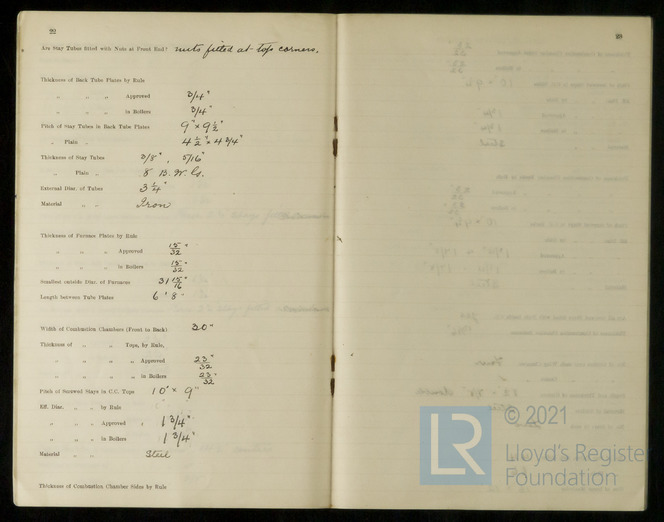 22
Are Stay Tubes fitted with Nuts at Front End? nuts fitted at top corners.
Thickness of Back Tube Plates by Rule
" " " Approved 3/4"
" " " in Boilers 3/4"
Pitch of Stay Tubes in Back Tube Plates 9" x 9 1/2"
" Plain " 4 1/2" x 4 3/4"
Thickness of Stay Tubes 3/8", 5/16"
" Plain " 8 B.W.G.
External Diar. of Tubes 3 1/4"
Material " " Iron
Thickness of Furnace Plates by Rule
" " " Approved 15/32"
" " " in Boilers 15/32"
Smallest outside Diar. of Furnaces 31 15/16"
Length between Tube Plates 6' 8"
Width of Combustion Chambers (Front to Back) 30"
Thickness of " " Tops, by Rule,
" " " " Approved 23/32"
" " " " in Boilers 23/32"
Pitch of Screwed Stays in C.C. Tops 10" x 9"
Eff. Diar. " " by Rule
" " " Approved 1 3/4"
" " " in Boilers 1 3/4"
Material " " Steel
Thickness of Combustion Chamber Sides by Rule
© 2021
LR
Lloyd's Register
Foundation